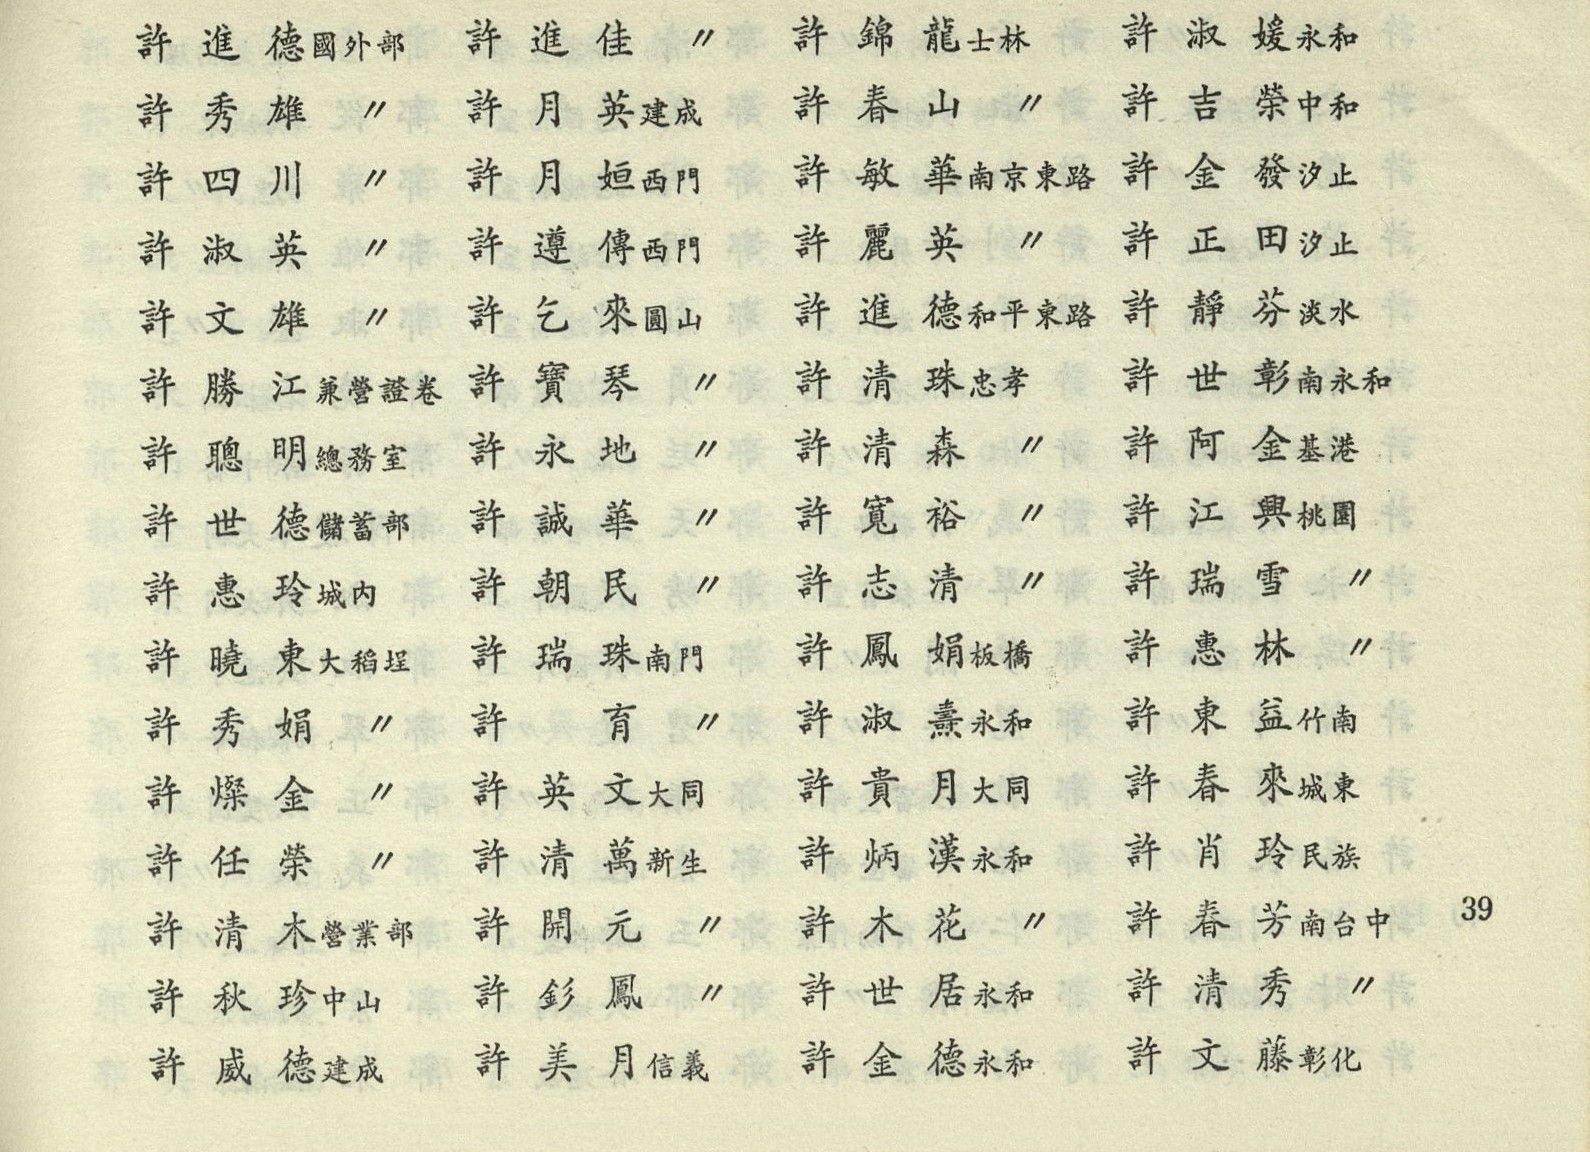 許進德國外部 許進佳〃 許錦龍士林 許淑媛永和
許秀雄〃 許月英建成 許春山〃 許吉榮中和
許四川〃 許月姮西門 許敏華南京東路 許金發汐止
許淑英〃 許遵傳西門 許麗英〃 許正田汐止
許文雄〃 許乞來圓山 許進德和平東路 許靜芬淡水
許勝江兼營證卷 許寶琴〃 許清珠忠孝 許世彰南永和
許聰明總務室 許永地〃 許清森〃 許阿金基港
許世德儲蓄部 許誠華〃 許寬裕〃 許江興桃園
許惠玲城內 許朝民〃 許志清〃 許瑞雪〃
許曉東大稻埕 許瑞珠南門 許鳳娟板橋 許惠林〃
許秀娟〃 許育〃 許淑燾永和 許東益竹南
許燦金〃 許英文大同 許貴月大同 許春來城東
許任榮〃 許清萬新生 許炳漢永和 許肖玲民族
許清木營業部 許開元〃 許木花〃 許春芳南台中
39
許秋珍中山 許釤鳳〃 許世居永和 許清秀〃
許威德建成 許美月信義 許金德永和 許文藤彰化